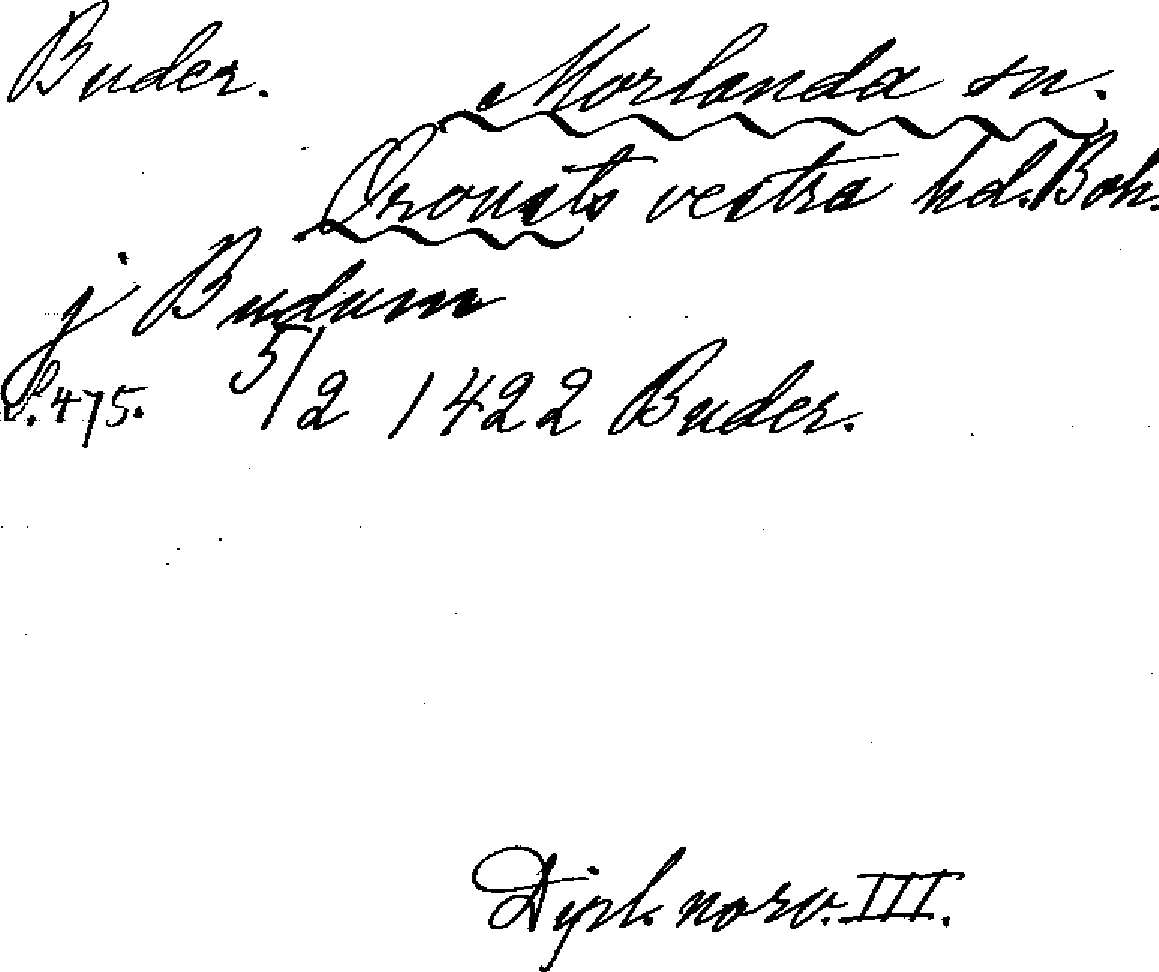 Buder. Morlanda sn.
Orousts vestra hd. Boh.
j Budum
S. 475. 5/2 1422 Buder.
Dipl. norv. III.